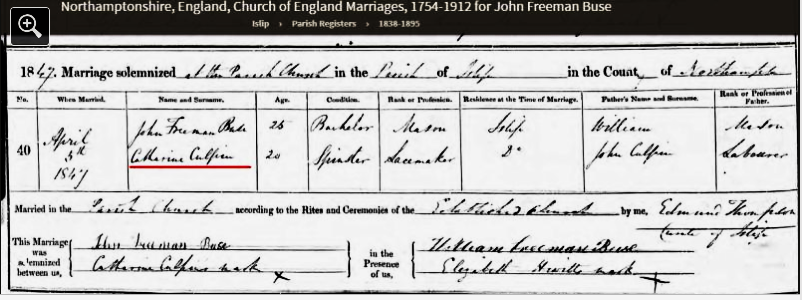 Northamptonshire, England, Church of England Marriages, 1754-1912 for John Freeman Buse
Islip › Parish Registers › 1838-1895
1847. Marriage solemnized at the Parish Church in the Parish of Islip in the County of Northampton
No. When Married. Name and Surname. Age. Condition. Rank or Profession. Residence at the Time of Marriage. Father's Name and Surname. Rank or Profession of Father.
John Freeman Buse 25 Bachelor Mason Islip William Mason
40 April 5th 1847 Catharine Culpin 20 Spinster Lacemaker Do John Culpin Labourer
Married in the Parish Church according to the Rites and Ceremonies of the Established Church by me, Edmund Thompson
Curate of Islip
This Marriage was solemnized between us, John Freeman Buse
Catharine Culpins mark X
in the Presence of us, William Freeman Buse
Elizabeth Hewitts mark X